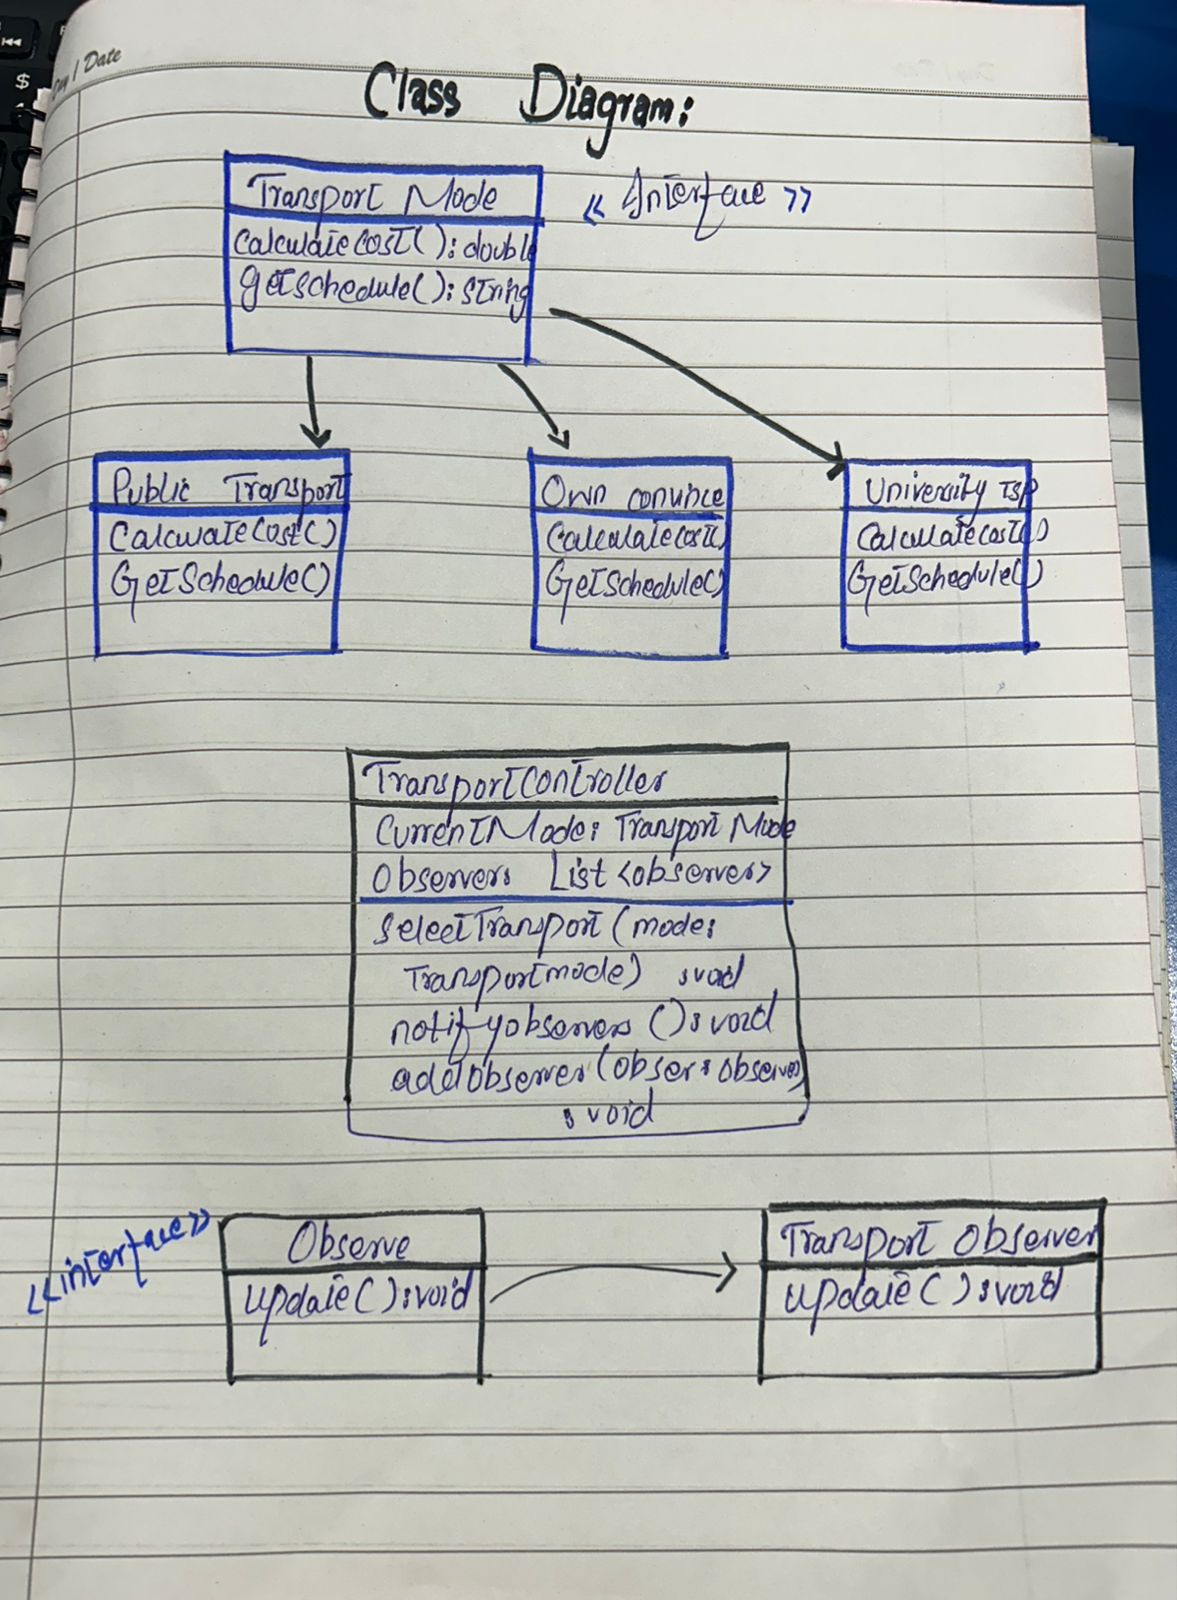 Day / Date
Class Diagram:
Transport Mode
<< Interface >>
CalculateCost(): double
getschedule(): string
Public Transport
CalculateCost()
GetSchedule()
Own convince
CalculateCost()
GetSchedule()
University TSP
CalculateCost()
GetSchedule()
TransportController
CurrentMode: Transport Mode
Observer: List <observer>
selectTransport (mode:
Transportmode) :void
notifyobservers () : void
addobserver (obser : observer)
: void
<<interface>>
Observe
update() : void
Transport Observer
update() : void